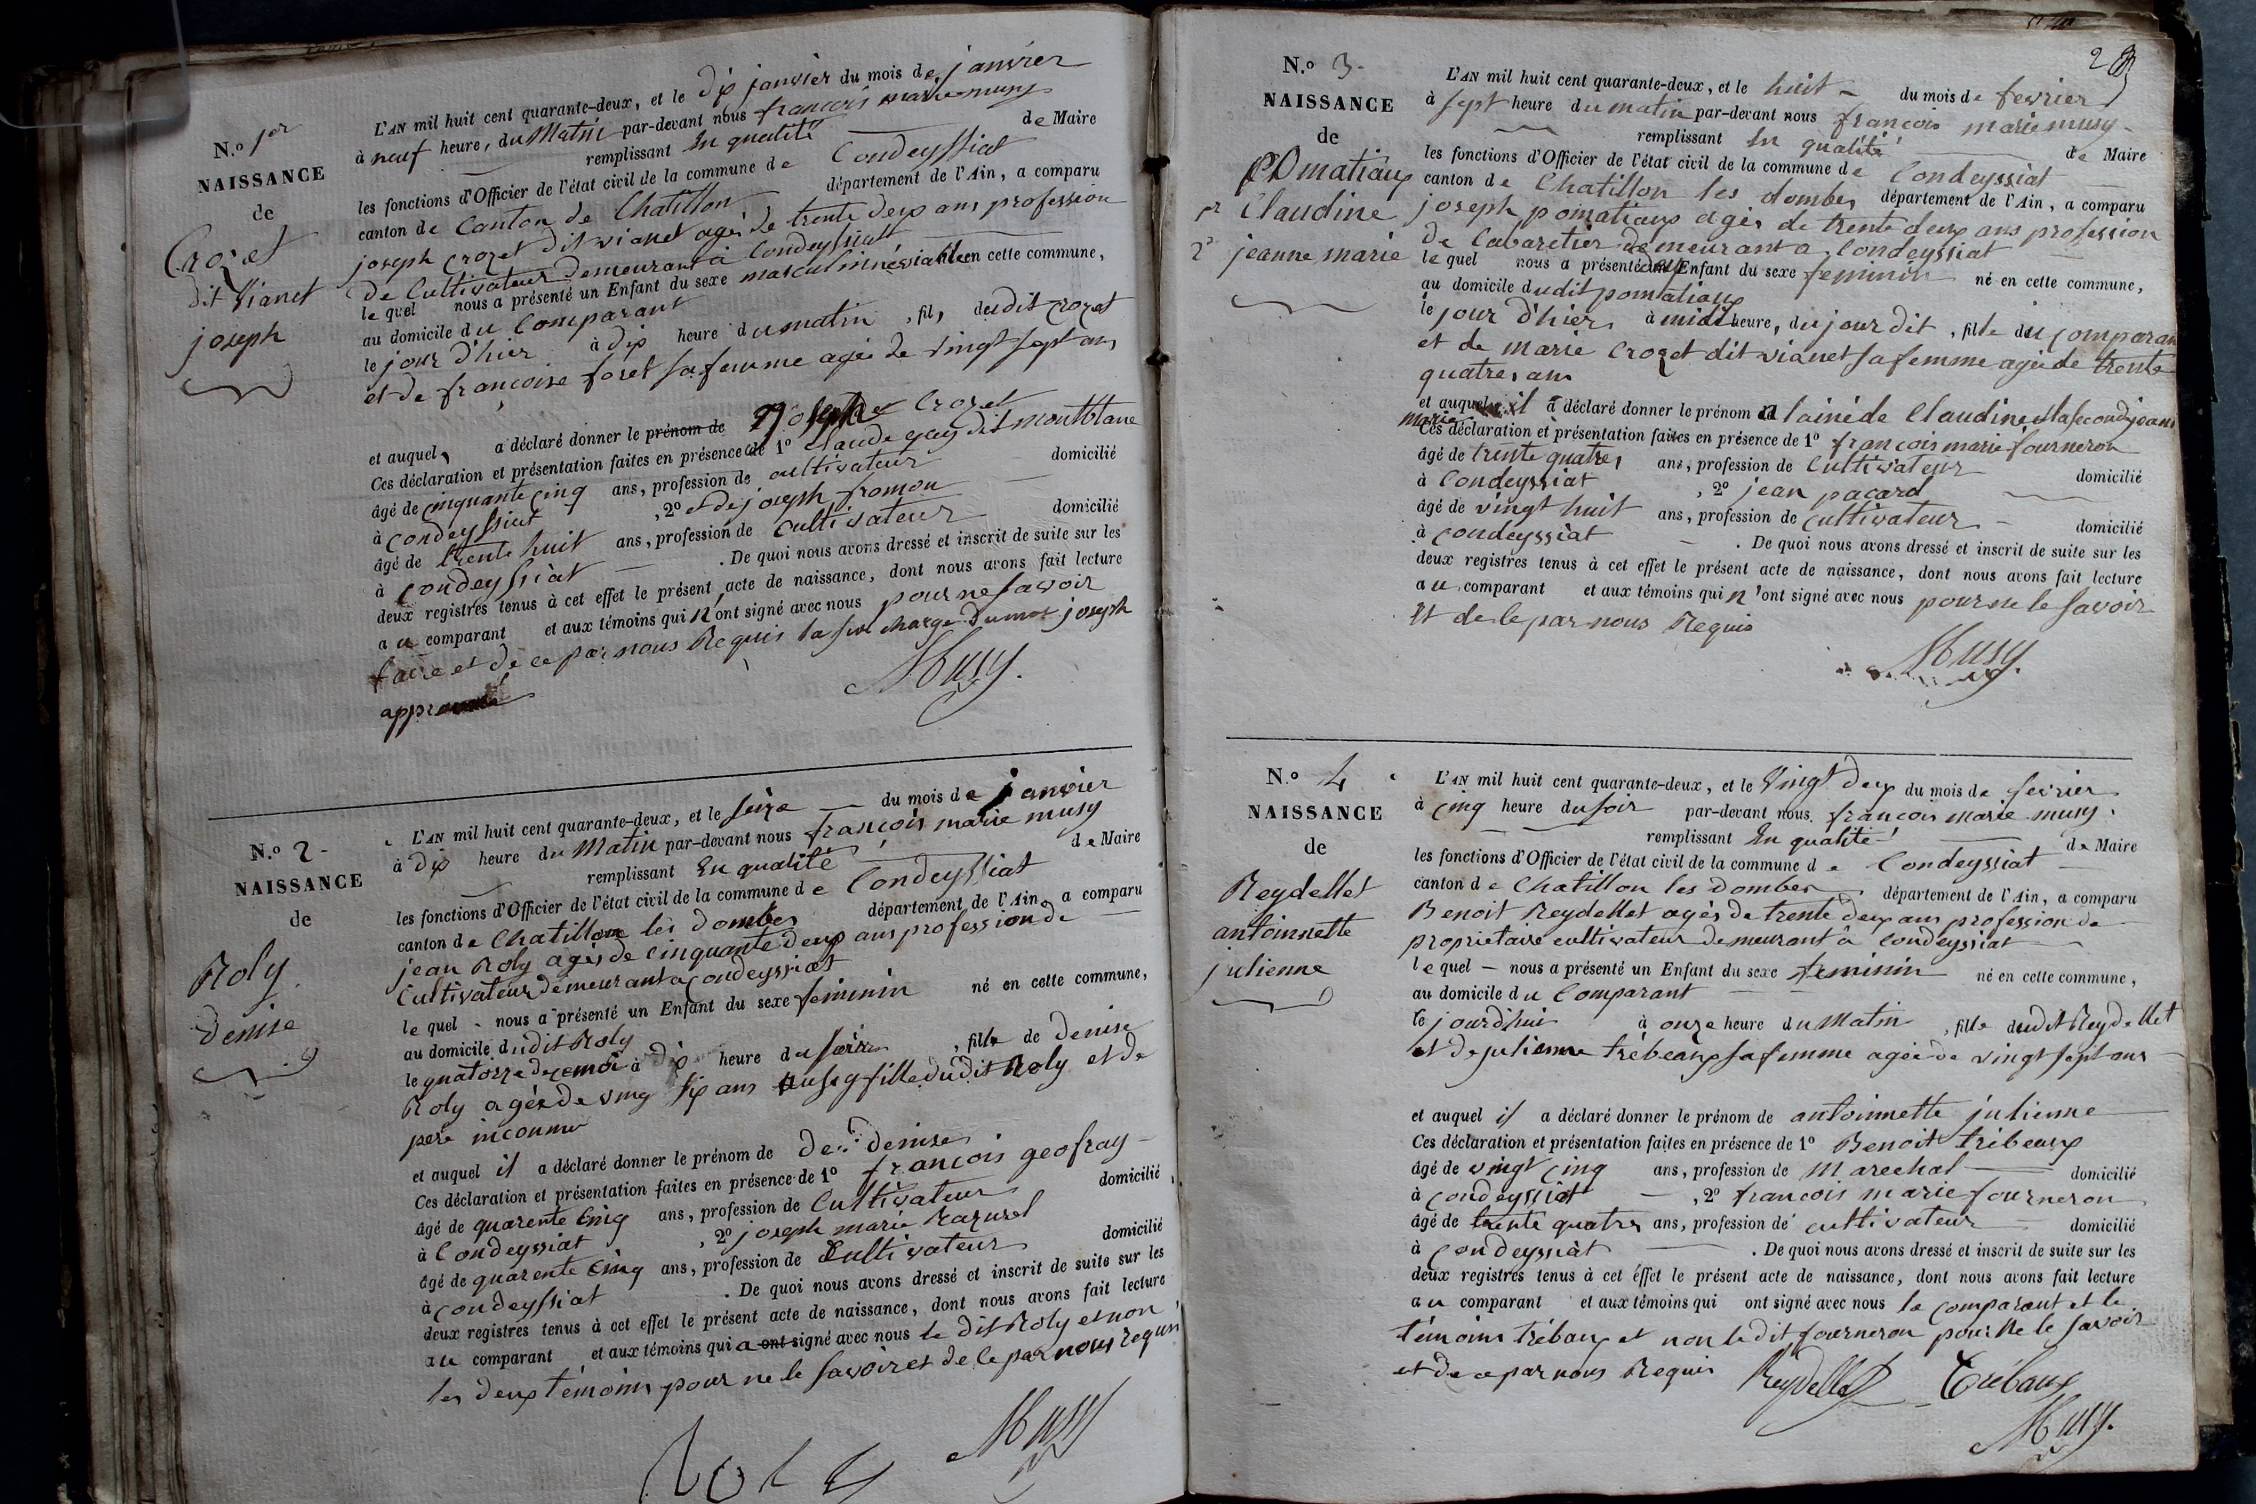 N.o 1er
NAISSANCE
de
Crozet
dit Vianet
joseph
L'AN mil huit cent quarante-deux, et le dix janvier du mois de janvier
à neuf heure, du Matin par-devant nous françois marie musy
remplissant En qualité de Maire
les fonctions d'Officier de l'état civil de la commune de Condeyssiat
canton de Canton de Chatillon département de l'Ain, a comparu
joseph crozet dit vianet agés de trente deux ans profession
de Cultivateur demeurant a Condeyssiat
lequel nous a présenté un Enfant du sexe masculin né en cette commune,
au domicile du Comparant
le jour d'hier à dix heure du matin, fils dudit crozet
et de françoise foret sa femme agée de vingt sept ans
et auquel a déclaré donner le prénom de joseph Crozet
Ces déclaration et présentation faites en présence de 1º Claude gay dit montblanc
âgé de cinquante cinq ans, profession de cultivateur domicilié
à condeyssiat, 2º et de joseph fromon
âgé de trente huit ans, profession de Cultivateur domicilié
à condeyssiat. De quoi nous avons dressé et inscrit de suite sur les
deux registres tenus à cet effet le présent acte de naissance, dont nous avons fait lecture
au comparant et aux témoins qui n'ont signé avec nous pour ne savoir
faire et de ce par nous Requis la surcharge du mot joseph
approuvé
Musy.
N.o 2
NAISSANCE
de
Roly
Denise
L'AN mil huit cent quarante-deux, et le seize du mois de janvier
à dix heure du Matin par-devant nous françois marie musy
remplissant En qualité de Maire
les fonctions d'Officier de l'état civil de la commune de Condeyssiat
canton de Chatillon les dombes département de l'Ain, a comparu
jean Roly agés de cinquante deux ans profession de
Cultivateur demeurant a condeyssiat
lequel nous a présenté un Enfant du sexe feminin né en cette commune,
au domicile dudit Roly
le quatorze de ce moi à dix heure du soir, fille de denise
Roly agée de ving six ans fille dudit Roly et de
pere inconnu
et auquel il a déclaré donner le prénom de de denise
Ces déclaration et présentation faites en présence de 1º françois geofray
âgé de quarente cinq ans, profession de Cultivateur domicilié
à Condeyssiat, 2º joseph marie Razurel
âgé de quarente cinq ans, profession de Cultivateur domicilié
à condeyssiat. De quoi nous avons dressé et inscrit de suite sur les
deux registres tenus à cet effet le présent acte de naissance, dont nous avons fait lecture
au comparant et aux témoins qui a ont signé avec nous le dit Roly et non
les deux témoins pour ne le savoir et de ce par nous requis
Roly Musy
2
N.o 3
NAISSANCE
de
POmatiaux
1r Claudine
2º jeanne marie
L'AN mil huit cent quarante-deux, et le huit du mois de fevrier
à sept heure du matin par-devant nous françois marie musy
remplissant En qualité de Maire
les fonctions d'Officier de l'état civil de la commune de Condeyssiat
canton de Chatillon les dombes département de l'Ain, a comparu
joseph pomatiaux agés de trente deux ans profession
de Cabaretier demeurant a Condeyssiat
lequel nous a présenté deux Enfant du sexe feminin né en cette commune,
au domicile dudit pomatiaux
le jour d'hier à midi heure, du jour dit, fille du comparan
et de marie Crozet dit vianet sa femme agée de trente
quatres ans
et auquel il a déclaré donner le prénom a lainé de Claudine et la second jeane
marie
Ces déclaration et présentation faites en présence de 1º françois marie fourneron
âgé de trente quatres ans, profession de Cultivateur domicilié
à Condeyssiat, 2º jean pacard
âgé de vingt huit ans, profession de cultivateur domicilié
à condeyssiat. De quoi nous avons dressé et inscrit de suite sur les
deux registres tenus à cet effet le présent acte de naissance, dont nous avons fait lecture
au comparant et aux témoins qui n'ont signé avec nous pour ne le savoir
Et de le par nous Requis
Musy.
N.o 4
NAISSANCE
de
Reydellet
antoinnette
julienne
L'AN mil huit cent quarante-deux, et le Vingt deux du mois de fevrier
à cinq heure du soir par-devant nous françois marie musy
remplissant En qualité de Maire
les fonctions d'Officier de l'état civil de la commune de Condeyssiat
canton de Chatillon les Dombes département de l'Ain, a comparu
Benoit Reydellet agés de trente deux ans profession de
proprietaire cultivateur demeurant à condeyssiat
lequel nous a présenté un Enfant du sexe feminin né en cette commune,
au domicile du Comparant
le jourd'hui à onze heure du Matin, fille dudit Reydellet
et de julienne trébeaux sa femme agée de vingt sept ans
et auquel il a déclaré donner le prénom de antoinnette julienne
Ces déclaration et présentation faites en présence de 1º Benoit trébeaux
âgé de vingt cinq ans, profession de Marechal domicilié
à condeyssiat, 2º françois marie fourneron
âgé de trente quatres ans, profession de cultivateur domicilié
à condeyssiat. De quoi nous avons dressé et inscrit de suite sur les
deux registres tenus à cet effet le présent acte de naissance, dont nous avons fait lecture
au comparant et aux témoins qui ont signé avec nous le comparant et le
témoins trébaux et non le dit fourneron pour ne le savoir
et de ce par nous Requis Reydellet Trébaux
Musy.